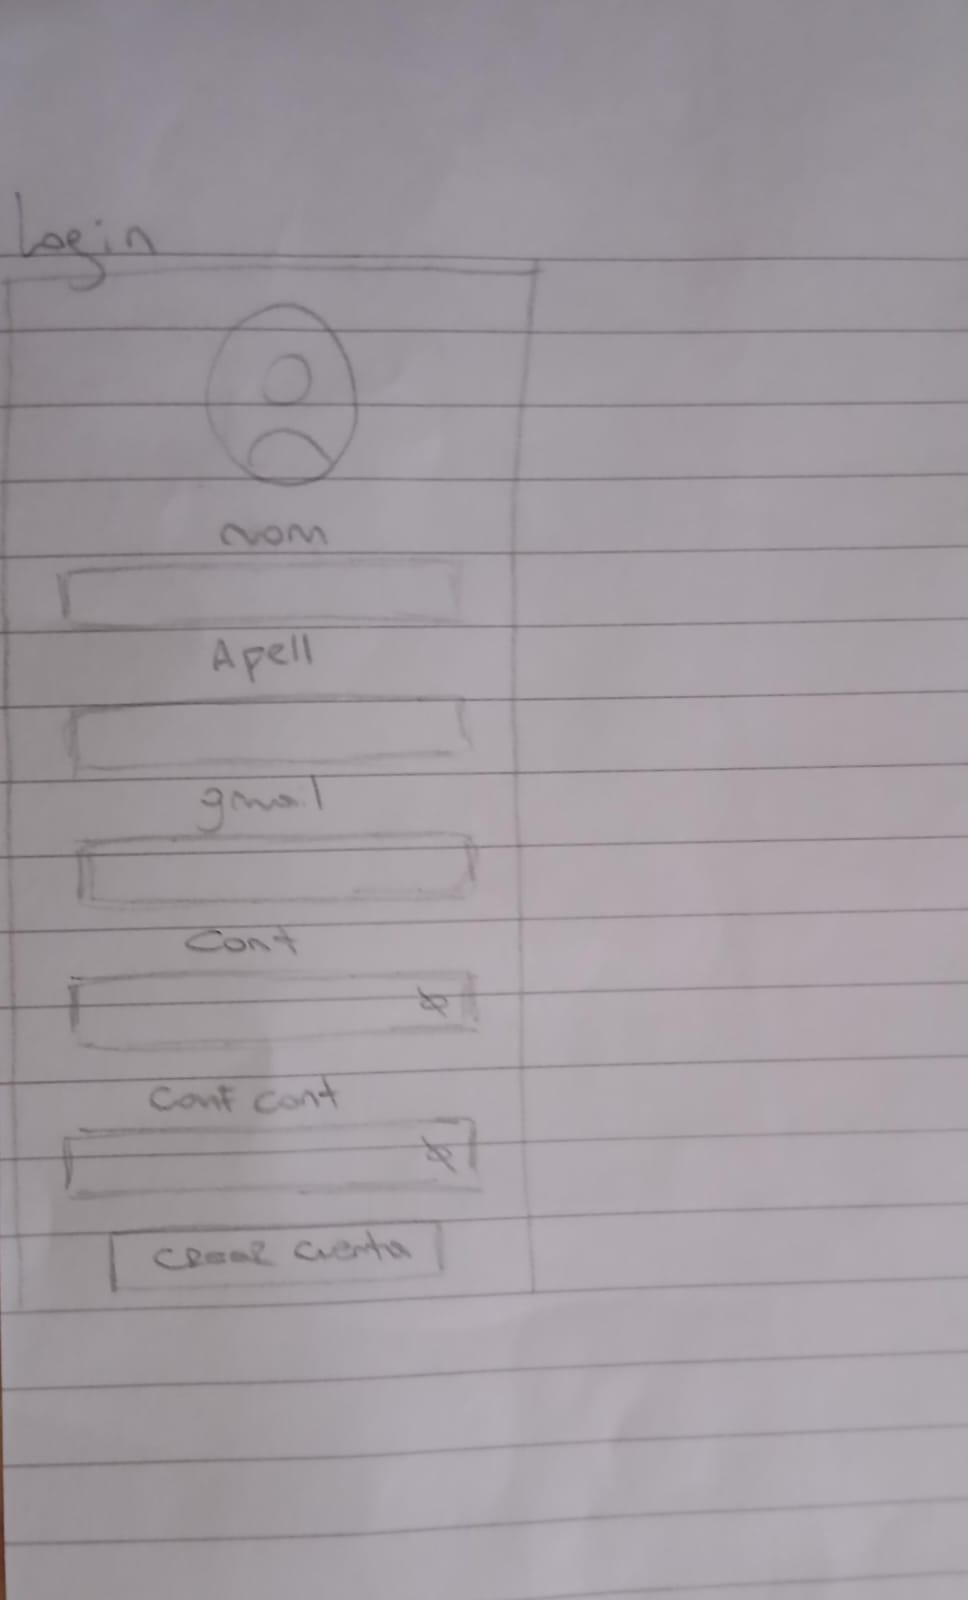 Login
Nom
Apell
gmail
Cont
Conf cont
Crear cuenta